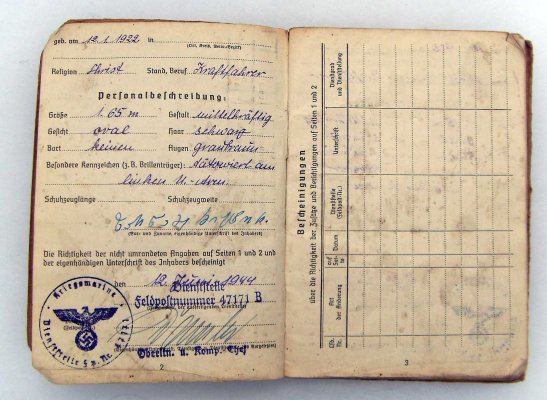 geb. am 12.1.1922 in
(Ort, Kreis, Verw.-Bezirk)
Religion Christ Stand, Beruf Kraftfahrer
Personalbeschreibung:
Größe 1.65 m Gestalt mittelkräftig
Gesicht oval Haar schwarz
Bart keinen Augen graubraun
Besondere Kennzeichen (z. B. Brillenträger): tätowiert am
linken U-Arm.
Schuhzeuglänge Schuhzeugweite
(Vor- und Zuname, eigenhändige Unterschrift des Inhabers)
Die Richtigkeit der nicht umrandeten Angaben auf Seiten 1 und 2 und
der eigenhändigen Unterschrift des Inhabers bescheinigt
den 12. Juni 1944
Dienststelle
Feldpostnummer 47171 B
Kriegsmarine
Dienststelle
Oberltn. u. Komp. Chef
2
Bescheinigungen
über die Richtigkeit der Zusätze und Berichtigungen auf Seiten 1 und 2
Lfd. Nr.
Art der Änderung
auf Seite
Datum
Dienststelle (Feldpost-Nr.)
Unterschrift
Dienstgrad und Dienststellung
3